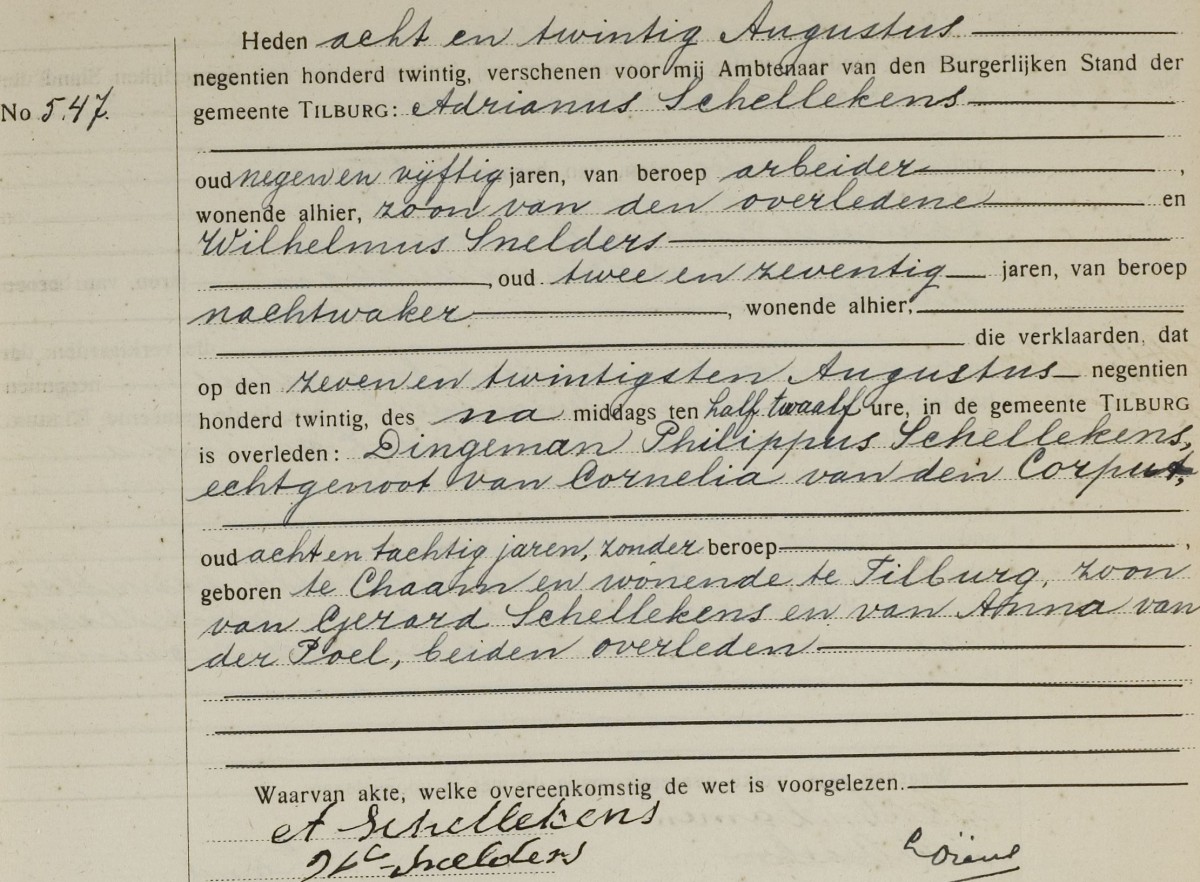 Heden acht en twintig Augustus
negentien honderd twintig, verschenen voor mij Ambtenaar van den Burgerlijken Stand der
No 547.
gemeente TILBURG: Adrianus Schellekens
oud negen en vyftig jaren, van beroep arbeider,
wonende alhier, zoon van den overledene en
Wilhelmus Snelders
, oud twee en zeventig jaren, van beroep
nachtwaker, wonende alhier,
die verklaarden, dat
op den zeven en twintigsten Augustus negentien
honderd twintig, des na middags ten half twaalf ure, in de gemeente TILBURG
is overleden: Dingeman Philippus Schellekens,
echtgenoot van Cornelia van den Corput,
oud acht en tachtig jaren, zonder beroep,
geboren te Chaam en wonende te Tilburg, zoon
van Gerard Schellekens en van Anna van
der Poel, beiden overleden
Waarvan akte, welke overeenkomstig de wet is voorgelezen.
A Schellekens
Snelders